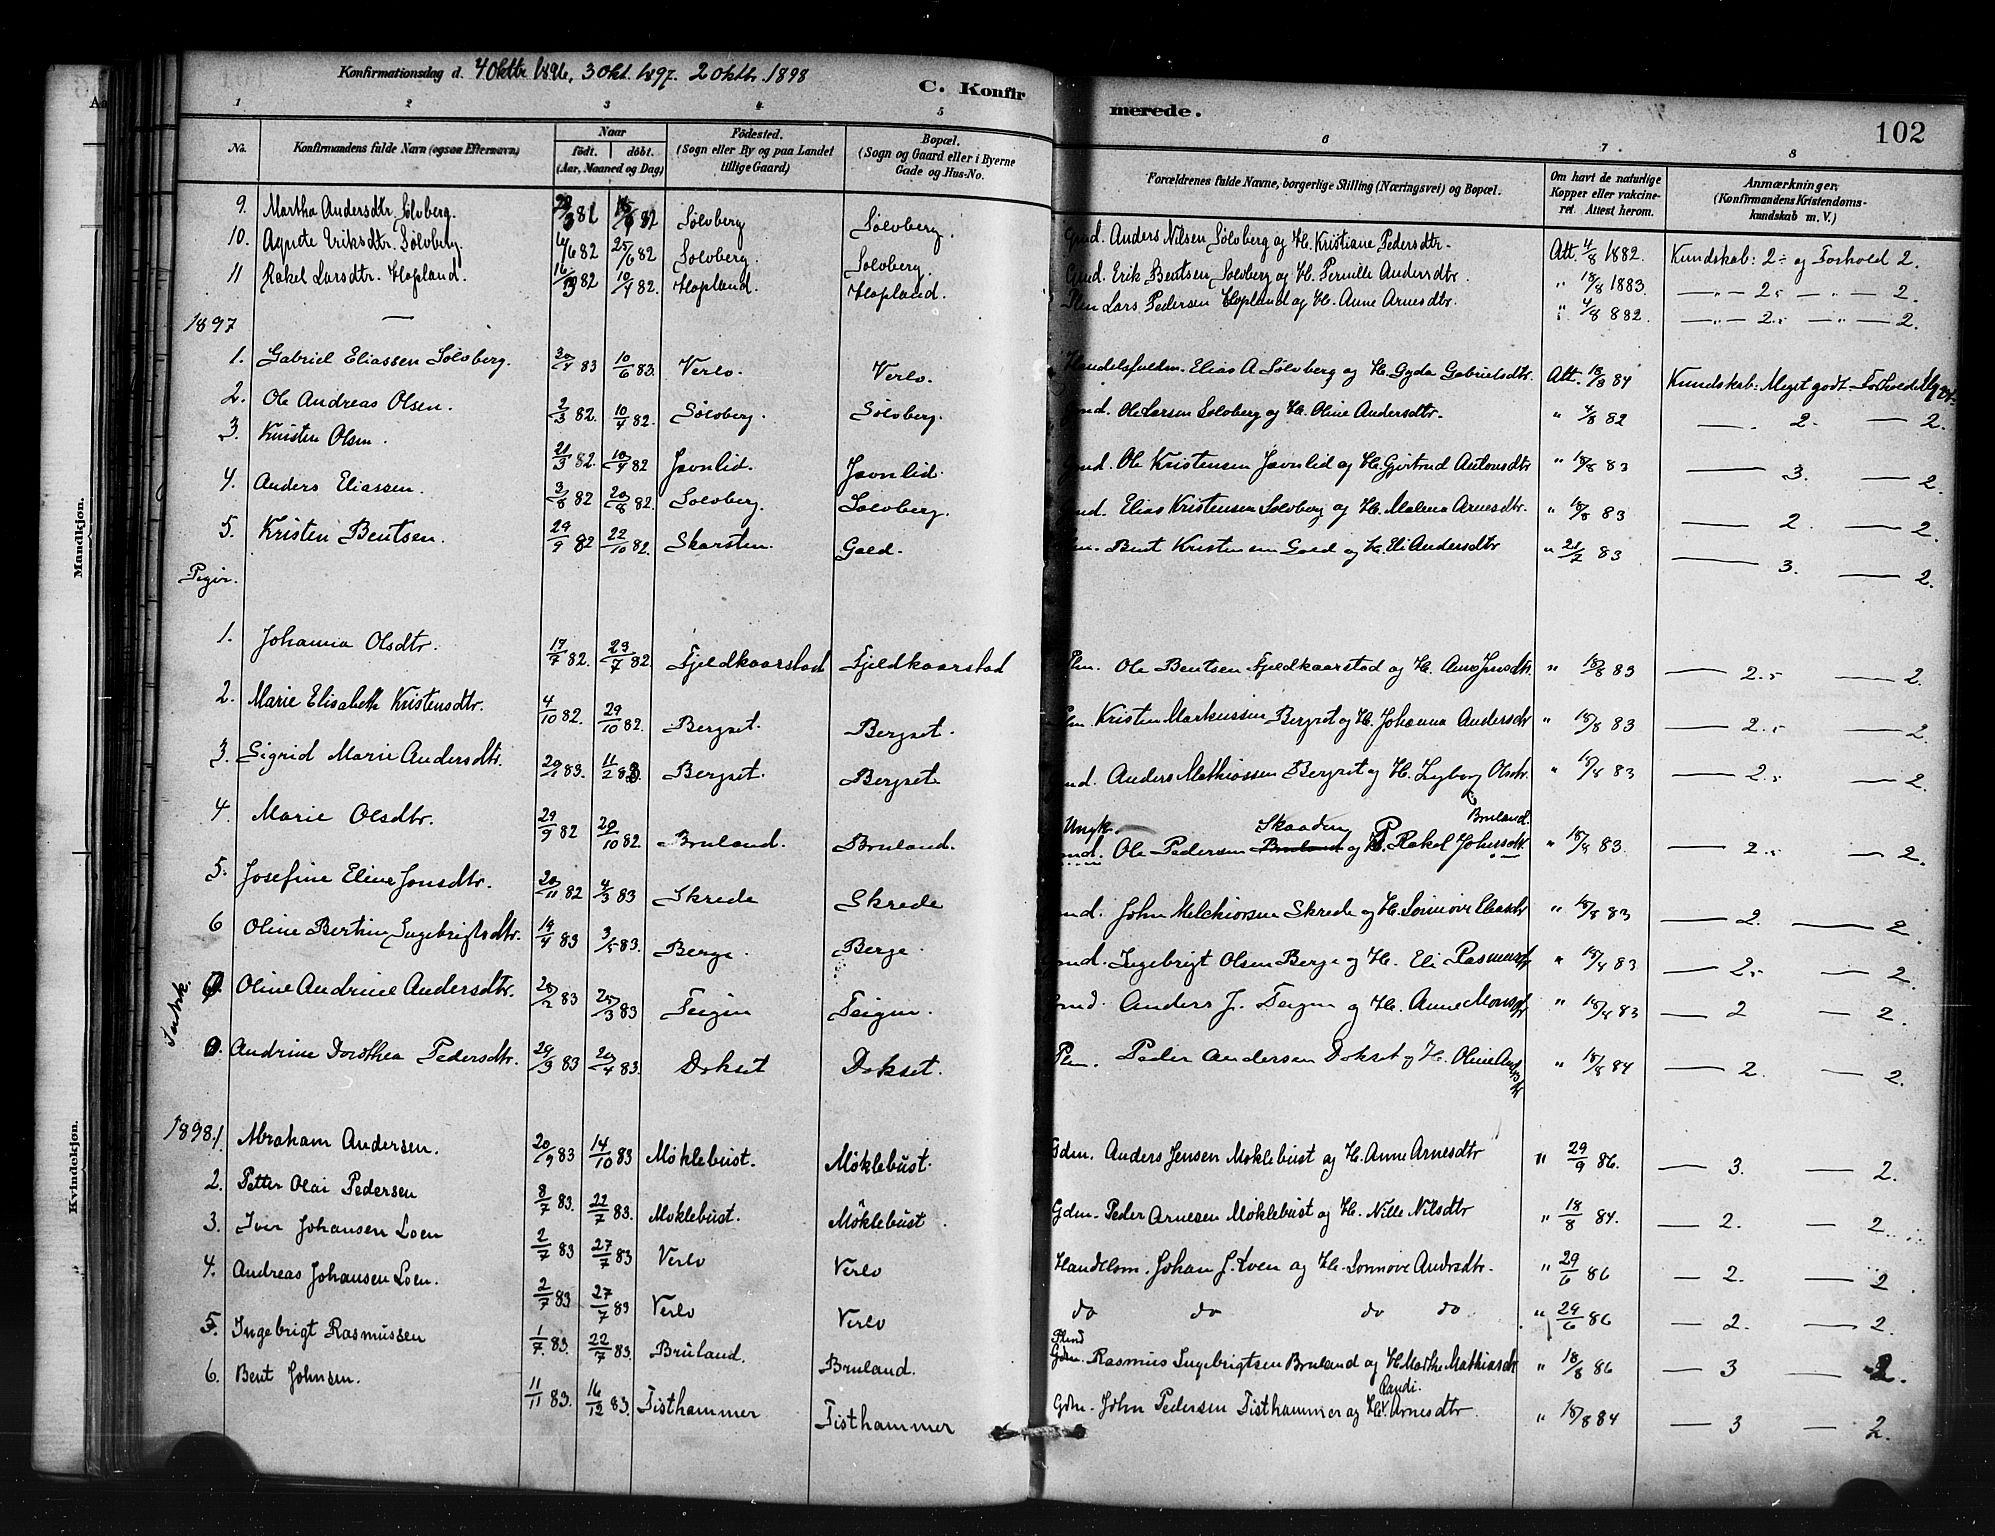 Konfirmationsdag d. 4 Oktbr 1896, 3 Okt. 1897. 2 Oktbr. 1898
C. Konfirmerede.
102
1 2 3 4 5 6 7 8
No. | Konfirmandens fulde Navn (ogsaa Efternavn) | Naar født. | døbt. (Aar, Maaned og Dag) | Fødested. (Sogn eller By og paa Landet tillige Gaard) | Bopæl. (Sogn og Gaard eller i Byerne Gade og Hus-No. | Forældrenes fulde Navne, borgerlige Stilling (Næringsvei) og Bopæl. | Om havt de naturlige Kopper eller vakcineret. Attest herom. | Anmærkninger. (Konfirmandens Kristendomskundskab m. V.)
9. Martha Andersdtr. Sølvberg. 82 82 Sølvberg Sølvberg. Gmd. Anders Nilsen Sølvberg og H. Kristiane Pedersdtr. Att. 4/8 1882. Kundskab: 2 og Forhold 2.
10. Agnete Eriksdtr. Sølvberg. 4/6 82 25/6 82 Solvberg. Solvberg. Gmd. Erik Bentsen Solvberg og H. Pernille Andersdtr. " 18/8 1883. — 2. — 2.
11 Rakel Larsdtr. Hopland. 82 10/4 82. Hopland. Hopland. Plm Lars Pedersen Hopland og H. Anne Arnesdtr. " 4/8 882. — 2. — 2.
1897 —
1. Gabriel Eliassen Sølvberg. 30/4 83 10/6 83. Verlo. Verlo. Handelsfuldm. Elias A Sølvberg og H. Gyda Gabrielsdtr. Att. 18/8 84 Kundskab: Meget godt. Forhold Mg.
2. Ole Andreas Olsen. 2/3 82. 10/4 82. Sølvberg. Sølvberg. Gmd. Ole Larsen Solvberg og H. Oline Andersdtr. " 4/8 82 — 2. — 2.
3. Kristen Olsen. 21/3 82. 10/4 82 Javnlid. Javnlid. Gmd. Ole Kristensen Javnlid og H. Gjertrud Antonsdtr " 18/8 83 — 3. — 2.
4. Anders Eliassen. 3/8 82 20/8 82. Solvberg. Solvberg. Gmd. Elias Kristensen Solvberg og H. Malena Arnesdtr. " 18/8 83 — 2. — 2.
5. Kristen Bentsen. 29/9 82 22/10 82. Skarsten. Gald. Plm. Bent Kristensen Gald og H. Eli Andersdtr " 21/7 83 — 3. — 2.
Piger.
1. Johanna Olsdtr. 17/7 82. 23/7 82. Fjeldkaarstad Fjeldkaarstad Plm. Ole Bentsen Fjeldkaarstad og H. Ane Jensdtr. " 18/8 83 — 2. — 2.
2. Marie Elisabeth Kristensdtr. 4/10 82. 29/10 82. Bergset. Bergset. Plm. Kristen Markussen Bergset og H. Johanna Andersdtr " 18/8 83 — 2. — 2.
3. Sigrid Marie Andersdtr. 20/1 83. 11/2 83. Bergset. Bergset Gmd. Anders Mathiassen Bergset og H. Lyborg Olsdtr " 18/8 83 — 2. — 2.
4. Marie Olsdtr. 29/9 82 29/10 82. Bruland. Bruland. Ungk. Gmd. Ole Pedersen Bruland Skaaden og P. Rakel Johnsdtr Bruland. " 18/8 83. — 2. — 2.
5. Josefine Eline Jonsdtr. 20/11 82 4/3 83 Skrede Skrede Gmd. John Melchiorsen Skrede og H. Sønnove Eliasdtr " 18/8 83 — 2. — 2.
6 Oline Bertine Ingebrigtsdtr. 14/4 83 3/5 83. Berge. Berge. Gmd. Ingebrigt Olsen Berge og H. Eli Rasmusdtr " 18/8 83 — 2. — 2.
Oline Andrine Andersdtr. 20/2 83 25/3 83 Teigen Teigen. Gmd. Anders J. Teigen og H. Anne Monsdtr " 18/8 83 — 2 — 2.
Andrine Dorothea Pedersdtr. 29/3 83 20/4 83. Dokset Dokset. Plm. Peder Andersen Dokset og H. Oline " 18/8 84 — 2. — 2.
1898. 1. Abraham Andersen. 20/9 83 14/10 83 Møklebust. Møklebust. Gdm. Anders Jensen Møklebust og H. Anne Arnesdtr " 29/9 86. — 3. — 2.
2. Petter Olai Pedersen 8/7 83. 22/7 83. Møklebust. Møklebust. Gdm. Peder Arnesen Møklebust og H. Nille Nilsdtr " 18/8 84. — 2. — 2.
3. Iver Johansen Loen 2/7 83 27/7 83 Verlo Verlo Handelsm. Johan J. Loen og H. Sønnove Andrsdtr. " 29/6 86 — 2. — 2
4. Andreas Johansen Loen. 2/7 83 27/7 83 Verlo Verlo do do do do " 29/6 86 — 2. — 2.
5. Ingebrigt Rasmussen 1/7 83. 22/7 83. Bruland. Bruland. Plmd Gdm. Rasmus Ingebrigtsen Bruland og H Marthe Mathiasdtr " 18/8 86 — 3 — 2.
6. Bent Johnsen. 11/11 83. 16/12 83. Tisthammer Tisthammer Gdm. John Pedersen Tisthammer og H. Randi Arnesdtr. " 18/8 84 — 3 — 2.
Mandkjøn.
Kvindekjøn.